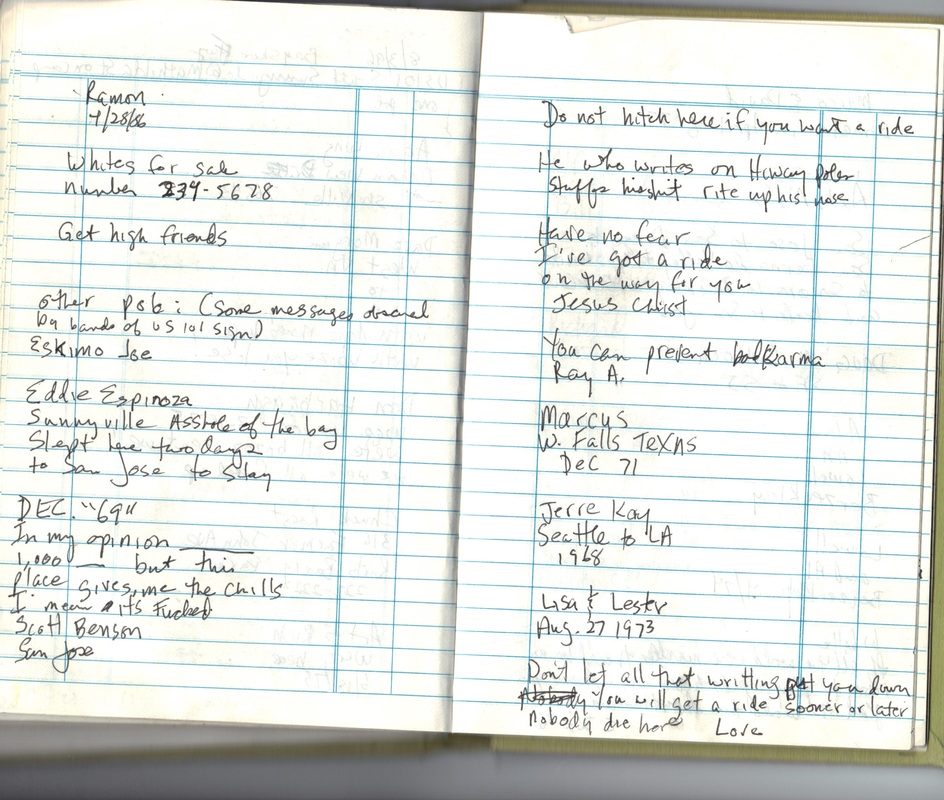 Ramon
7/28/86
Whites for sale
number 239-5678
Get high friends
other pob: (some messages obscured
by bands of US 101 sign)
Eskimo Joe
Eddie Espinoza
Sunnyville Asshole of the bay
Slept here two days
to San Jose to stay
DEC. "69"
In my opinion
1,000 __ but this
place gives me the chills
I mean its Fucked
Scott Benson
San Jose
Do not hitch here if you want a ride
He who writes on Hiway poles
stuffs rite up his nose
Have no fear
I've got a ride
on the way for you
Jesus Christ
You can prevent bad Karma
Ray A.
Marcus
W. Falls Texas
Dec 71
Jerre Kay
Seattle to LA
1968
Lisa & Lester
Aug. 27 1973
Don't let all that writting get you down
You will get a ride sooner or later
nobody die here Love